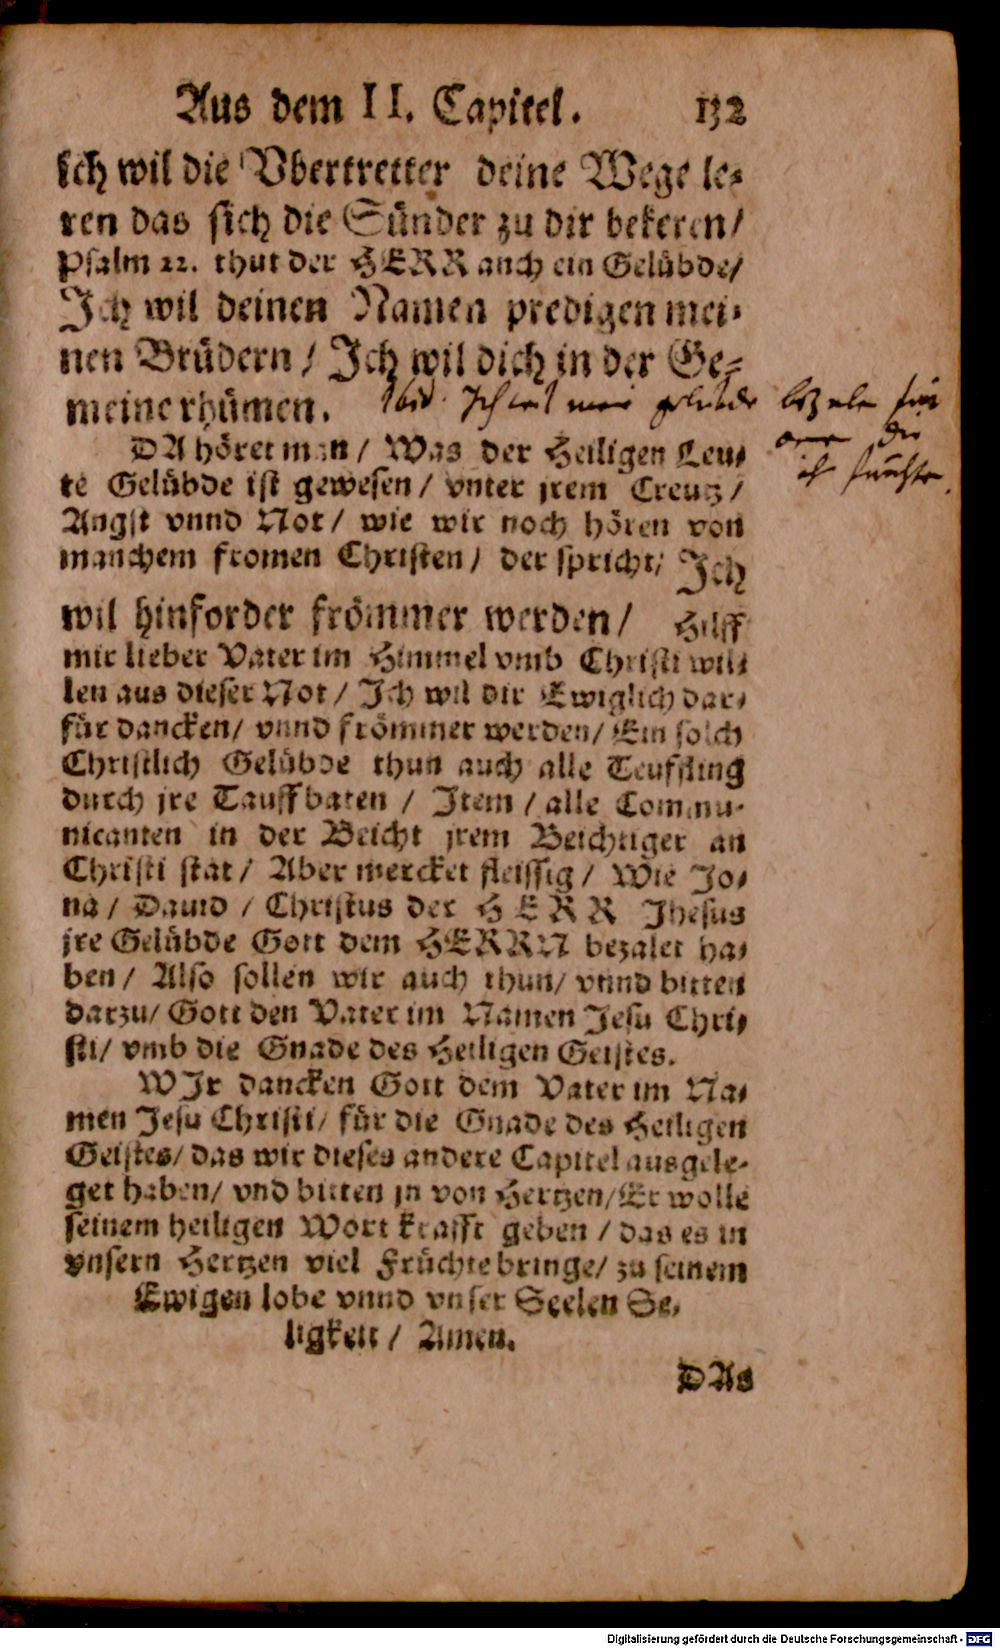 Aus dem II. Capitel. 132
Ich wil die Vbertretter deine Wege le⸗
ren das sich die Sünder zu dir bekeren/
Psalm 22. thut der HERR auch ein Gelübde/
Ich wil deinen Namen predigen mei⸗
nen Brüdern / Ich wil dich in der Ge⸗
meine rhümen.
ibid. Ich wil mein gelubde bezalen fur
die
ich fürchten.
DA höret man / Was der Heiligen Leu⸗
te Gelübde ist gewesen / vnter jrem Creutz /
Angst vnnd Not / wie wir noch hören von
manchem fromen Christen / der spricht; Ich
wil hinforder frömmer werden / Hilff
mir lieber Vater im Himmel vmb Christi wil⸗
len aus dieser Not / Ich wil dir Ewiglich dar⸗
für dancken/ vnnd frömmer werden/ Ein solch
Christlich Gelübde thun auch alle Teuffling
durch jre Tauffbaten / Item / alle Commu⸗
nicanten in der Beicht jrem Beichtiger an
Christi stat / Aber mercket fleissig / Wie Jo⸗
na / Dauid / Christus der HERR Jhesus
jre Gelübde Gott dem HERRN bezalet ha⸗
ben / Also sollen wir auch thun/ vnnd bitten
darzu/ Gott den Vater im Namen Jesu Chri⸗
sti/ vmb die Gnade des Heiligen Geistes.
WIr dancken Gott dem Vater im Na⸗
men Jesu Christi/ für die Gnade des Heiligen
Geistes/ das wir dieses andere Capitel ausgele⸗
get haben/ vnd bitten jn von Hertzen/ Er wolle
seinem heiligen Wort krafft geben / das es in
vnsern Hertzen viel Früchte bringe/ zu seinem
Ewigen lobe vnnd vnser Seelen Se⸗
ligkeit / Amen.
DAs
Digitalisierung gefördert durch die Deutsche Forschungsgemeinschaft - DFG